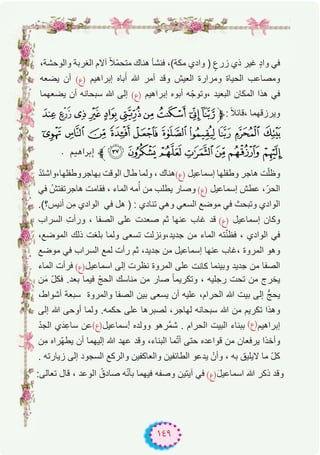 في وادٍ غير ذي زرع ( وادي مكة)، فنشأ هناك متحمّلاً آلام الغربة والوحشة،
ومصاعب الحياة ومرارة العيش وقد أمر الله أباه إبراهيم (ع) أن يضعه
في هذا المكان البعيد ،وتوجّه أبوه إبراهيم (ع) إلى الله سبحانه أن يضعهما
ويرزقهما ،قائلاً: ﴿ رَّبَّنَآ إِنِّىٓ أَسْكَنتُ مِن ذُرِّيَّتِى بِوَادٍ غَيْرِ ذِى زَرْعٍ عِندَ
بَيْتِكَ ٱلْمُحَرَّمِ رَبَّنَا لِيُقِيمُوا۟ ٱلصَّلَوٰةَ فَٱجْعَلْ أَفْـِٔدَةً مِّنَ ٱلنَّاسِ تَهْوِىٓ
إِلَيْهِمْ وَٱرْزُقْهُم مِّنَ ٱلثَّمَرَٰتِ لَعَلَّهُمْ يَشْكُرُونَ ﴿٣٧﴾ ﴾ إبراهيم .
وظلّت هاجر وطفلها إسماعيل (ع) هناك ، ولما طال الوقت بهاجر وطفلها،واشتدّ
الحرّ، عطش إسماعيل (ع) وصار يطلب من أمه الماء ، فقامت هاجر تفتش في
الوادي وتبحث في موضع السعي وهي تنادي : ( هل في الوادي من أنيس؟).
وكان إسماعيل (ع) قد غاب عنها ثم صعدت على الصفا ، ورأت السراب
في الوادي ، فظنّته الماء من جديد،ونزلت تسعى ولما بلغت ذلك الموضع،
وهو المروة ،غاب عنها إسماعيل من جديد، ثم رأت لمع السراب في موضع
الصفا من جديد وبينما كانت على المروة نظرت إلى اسماعيل(ع) فرأت الماء
يخرج من تحت رجليه ، وتكريماً صار من مناسك الحجّ فيما بعد. فكلّ من
يحجّ إلى بيت الله الحرام، عليه أن يسعى بين الصفا والمروة سبعة أشواط،
وهذا تكريم من الله سبحانه لهاجر، لصبرها على حكمه. ولما أوحى الله إلى
إبراهيم(ع) ببناء البيت الحرام . شمّر هو وولده إسماعيل(ع) عن ساعدي الجدّ
وأخذا يرفعان من قواعده حتى أتمّا البناء، وقد عهد الله إليهما أن يطهّراه من
كلّ ما لايليق به ، وأن يدعو الطائفين والعاكفين والركع السجود إلى زيارته .
وقد ذكر الله اسماعيل(ع) في آيتين وصفه فيهما بأنّه صادق الوعد ، قال تعالى:
١٤٩